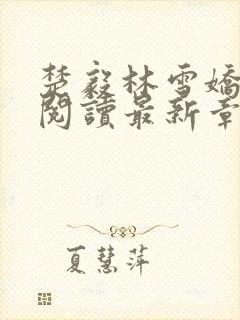 楚毅林雪嬌
閱讀最新章
夏慧萍